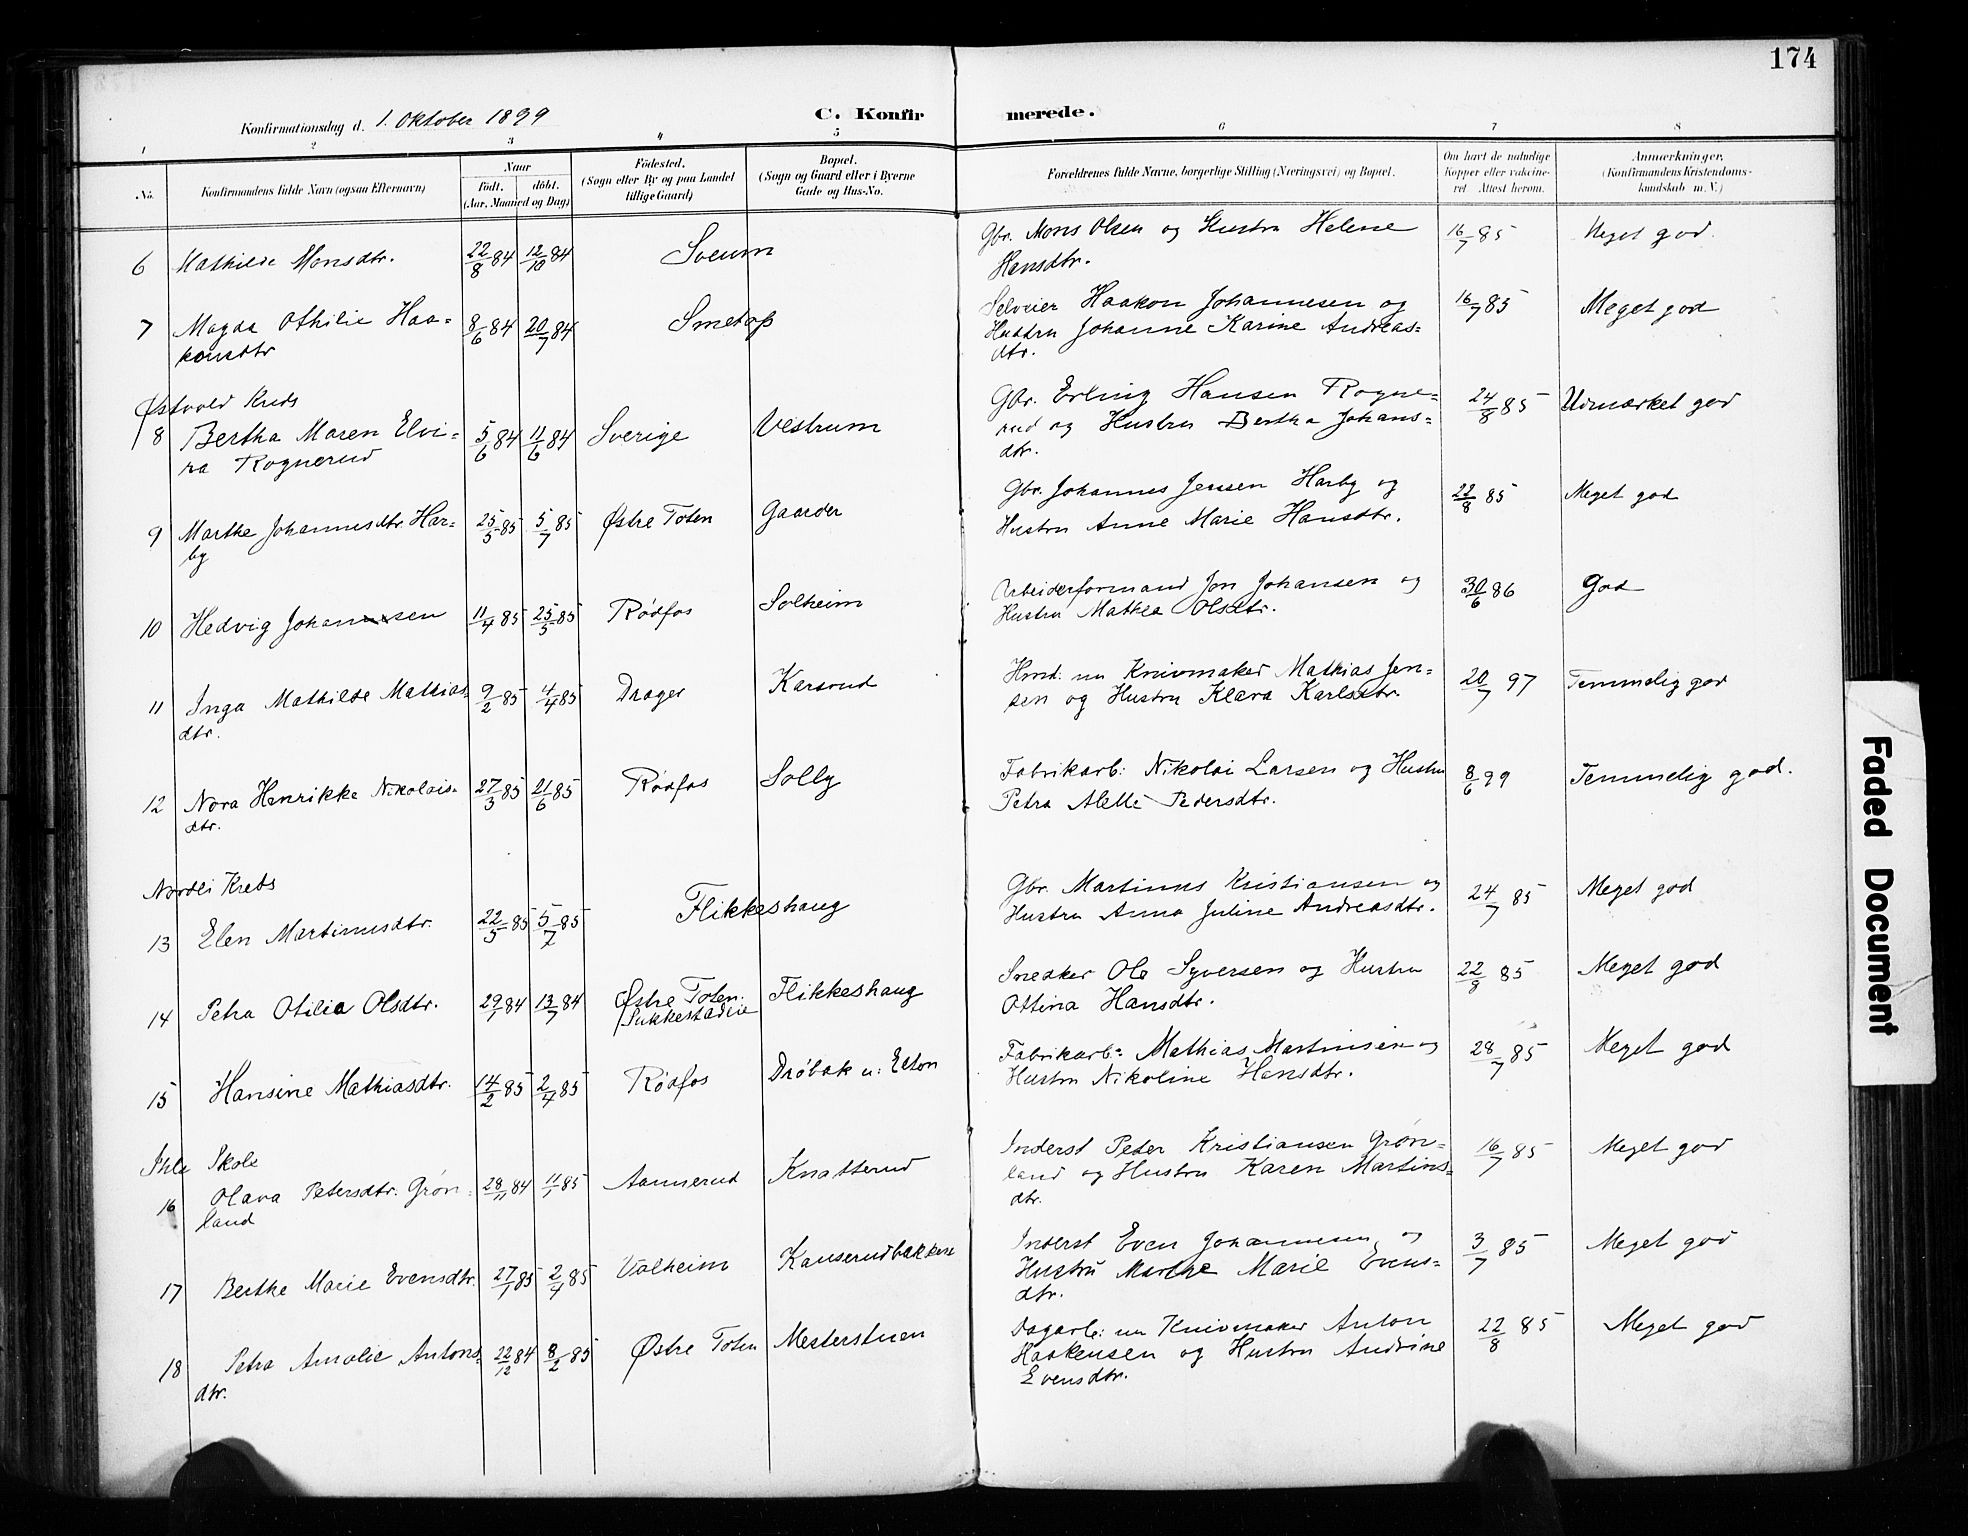 174
Konfirmationsdag d. 1. Oktober 1899 C. Konfirmerede.
1 2 3 4 5 6 7 8
No. Konfirmandens fulde Navn (ogsaa Efternavn) Naar født, døbt, (Aar, Maaned og Dag) Fødested, (Sogn eller By og paa Landet tillige Gaard) Bopæl. (Sogn og Gaard eller i Byerne Gade og Hus-No. Forældrenes fulde Navne, borgerlige Stilling (Næringsvei) og Bopæl. Om havt de naturlige Kopper eller vakcineret. Attest herom. Anmærkninger, (Konfirmandens Kristendomskundskab m. V.)
6 Mathilde Monsdtr. 22/8 84 12/10 84 Sveum Gbr. Mons Olsen og Hustru Helene Hansdtr. 16/7 85 Meget god.
7 Magda Othilie Haakonsdtr 8/6 84 20/7 84 Smetop Selveier Haakon Johannesen og Hustru Johanne Karine Andreasdtr. 16/7 85 Meget god
Østvold Kreds
8 Bertha Maren Elvira Rognerud 5/6 84 11/6 84 Sverige Vestrum Gbr. Erling Hansen Rognerud og Hustru Bertha Johansdtr. 24/8 85 Udmærket god
9 Marthe Johannesdtr. Harby 25/5 85 5/7 85 Østre Toten Gaarder Gbr. Johannes Jensen Harby og Hustru Anne Marie Hansdtr. 22/8 85 Meget god
10 Hedvig Johansen 11/4 85 25/5 85 Rödfos Solheim Arbeiderformand Jon Johansen og Hustru Mathea Olsdtr. 30/6 86 God
11 Inga Mathilde Mathiasdtr. 9/2 85 4/4 85 Drager Karsrud Hmd. nu Knivmaker Mathias Jensen og Hustru Klara Karlsdtr. 20/7 97 Temmelig god
12 Nora Henrikke Nikolaisdtr. 27/3 85 21/6 85 Rödfos Solby Fabrikarb: Nikolai Larsen og Hustru Petra Alette Pedersdtr. 8/6 99 Temmelig god.
Nordli Kreds
13 Elen Martinusdtr. 22/5 85 5/7 85 Flikkeshaug Gbr. Martinus Kristiansen og Hustru Anna Juline Andreasdtr. 24/7 85 Meget god
14 Petra Otilia Olsdtr. 29/1 84 13/7 84 Østre Toten. Flikkeshaug Snedker Ole Syversen og Hustru Ottina Hansdtr. 22/8 85 Meget god
15 Hansine Mathiasdtr. 14/2 85 2/4 85 Rödfos Dröbak u: Elton Fabrikarb: Mathias Martinsen og Hustru Nikoline Hansdtr. 28/7 85 Meget god
Ihle Skole
16 Olava Petersdtr. Grønland 28/11 84 11/1 85 Aannerud Knatterud Inderst Peter Kristiansen Grønland og Hustru Karen Martinsdtr. 16/7 85 Meget god
17 Berthe Marie Evensdtr. 27/1 85 2/4 85 Valheim Kanserudbakken Inderst Even Johannesen og Hustru Marthe Marie Evensdtr. 3/7 85 Meget god
18 Petra Amalie Antonsdtr. 22/12 84 8/2 85 Østre Toten Mesterstuen Dagarb: nu Knivmaker Anton Haakensen og Hustru Andrine Evensdtr. 22/8 85 Meget god
Faded Document